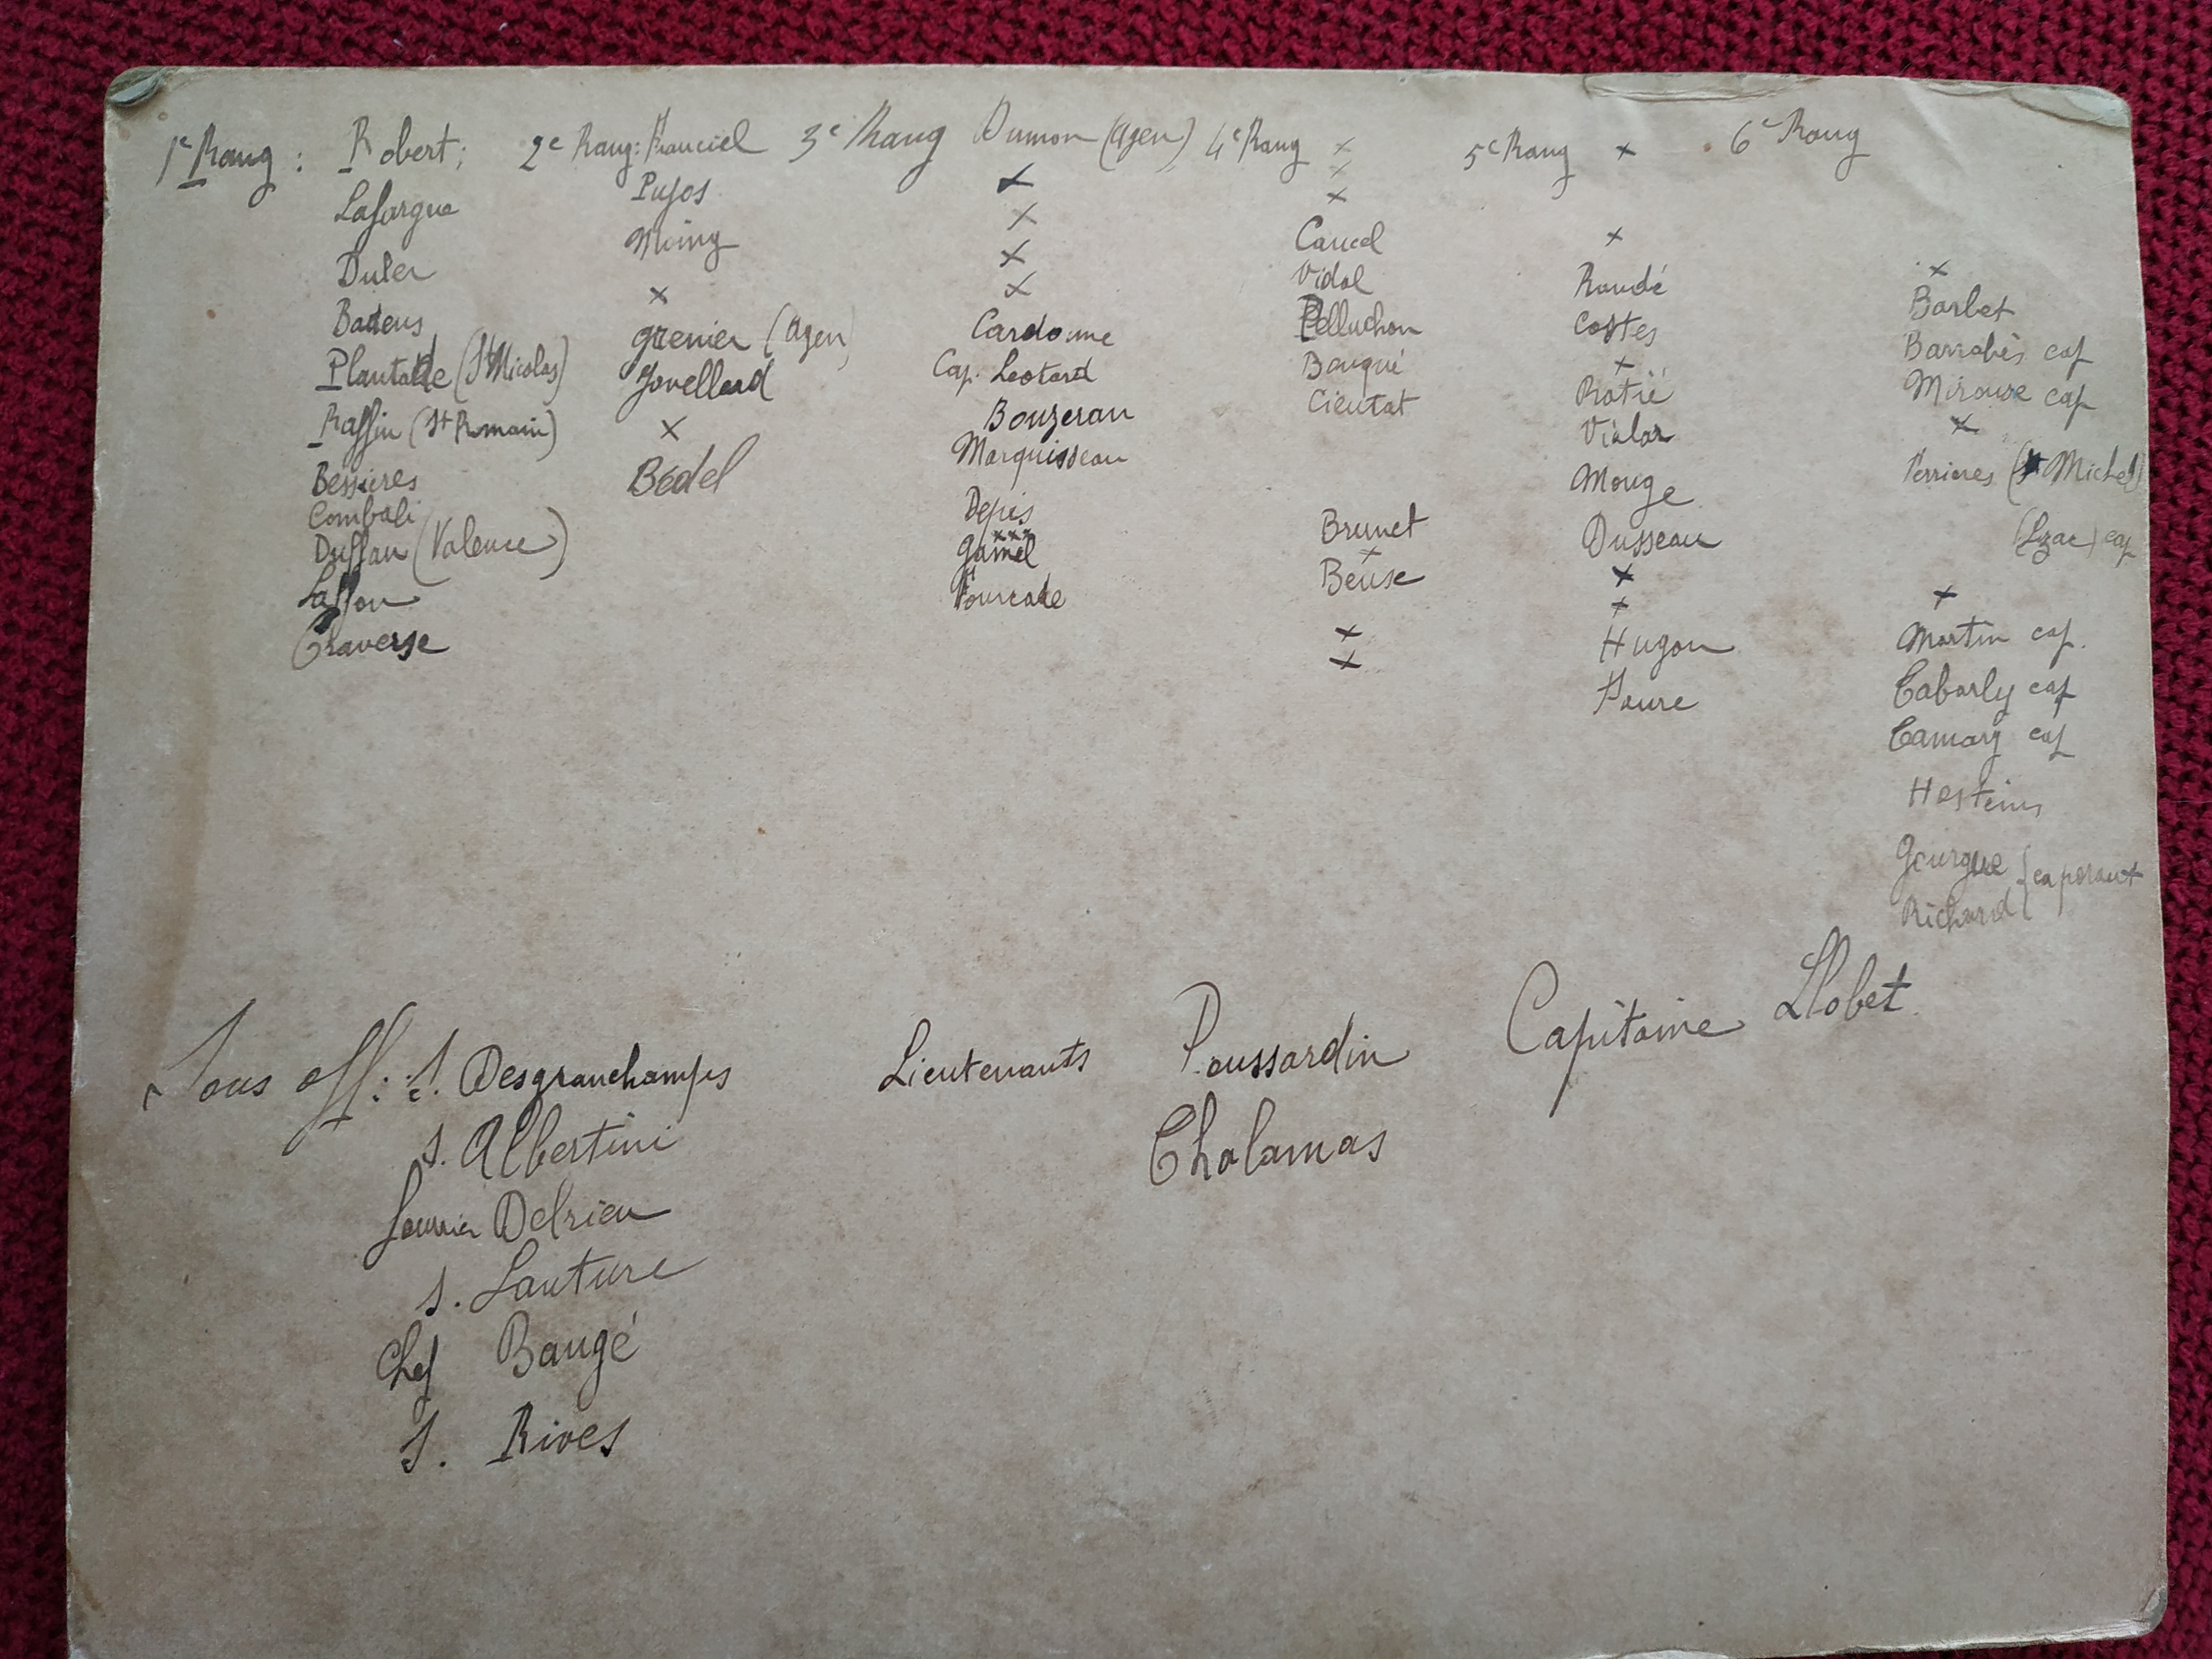 1e Rang : Robert;
Lafargue
Duler
Badens
Plantade (St Nicolas)
Raffin (St Romain)
Bessieres
Combali
Duffau (Valence)
Laffon
Traverse
2e Rang: Franciel
Pujos
Moing
x
Grenier (Agen)
Jovellard
x
Bédel
3e Rang Dumon (Agen)
x
x
x
x
Cardonne
Cap. Leotard
Bouzeran
Marquisseau
Depis
xxx
Gamel
Fourcade
4e Rang x
x
x
Cancel
Vidal
Pelluchon
Bouqué
Cieutat
Brunet
x
Beuse
x
x
5e Rang x
x
Roudé
Costes
x
Ratié
Vialar
Mouge
Dusseau
x
x
Hugon
Faure
6e Rang
x
Barbet
Barrabès cap
Mirouse cap
x
Ferrieres (St Michel)
(Lizac) cap
x
Martin cap.
Tabarly cap
Camary cap
Hosteins
Gourgue
Richard } caporaux
Sous off: S. Desgranchamps
S. Albertini
fourrier Delrieu
S. Lauture
Chef Baugé
S. Rives
Lieutenants Poussardin
Chalamas
Capitaine Llobet